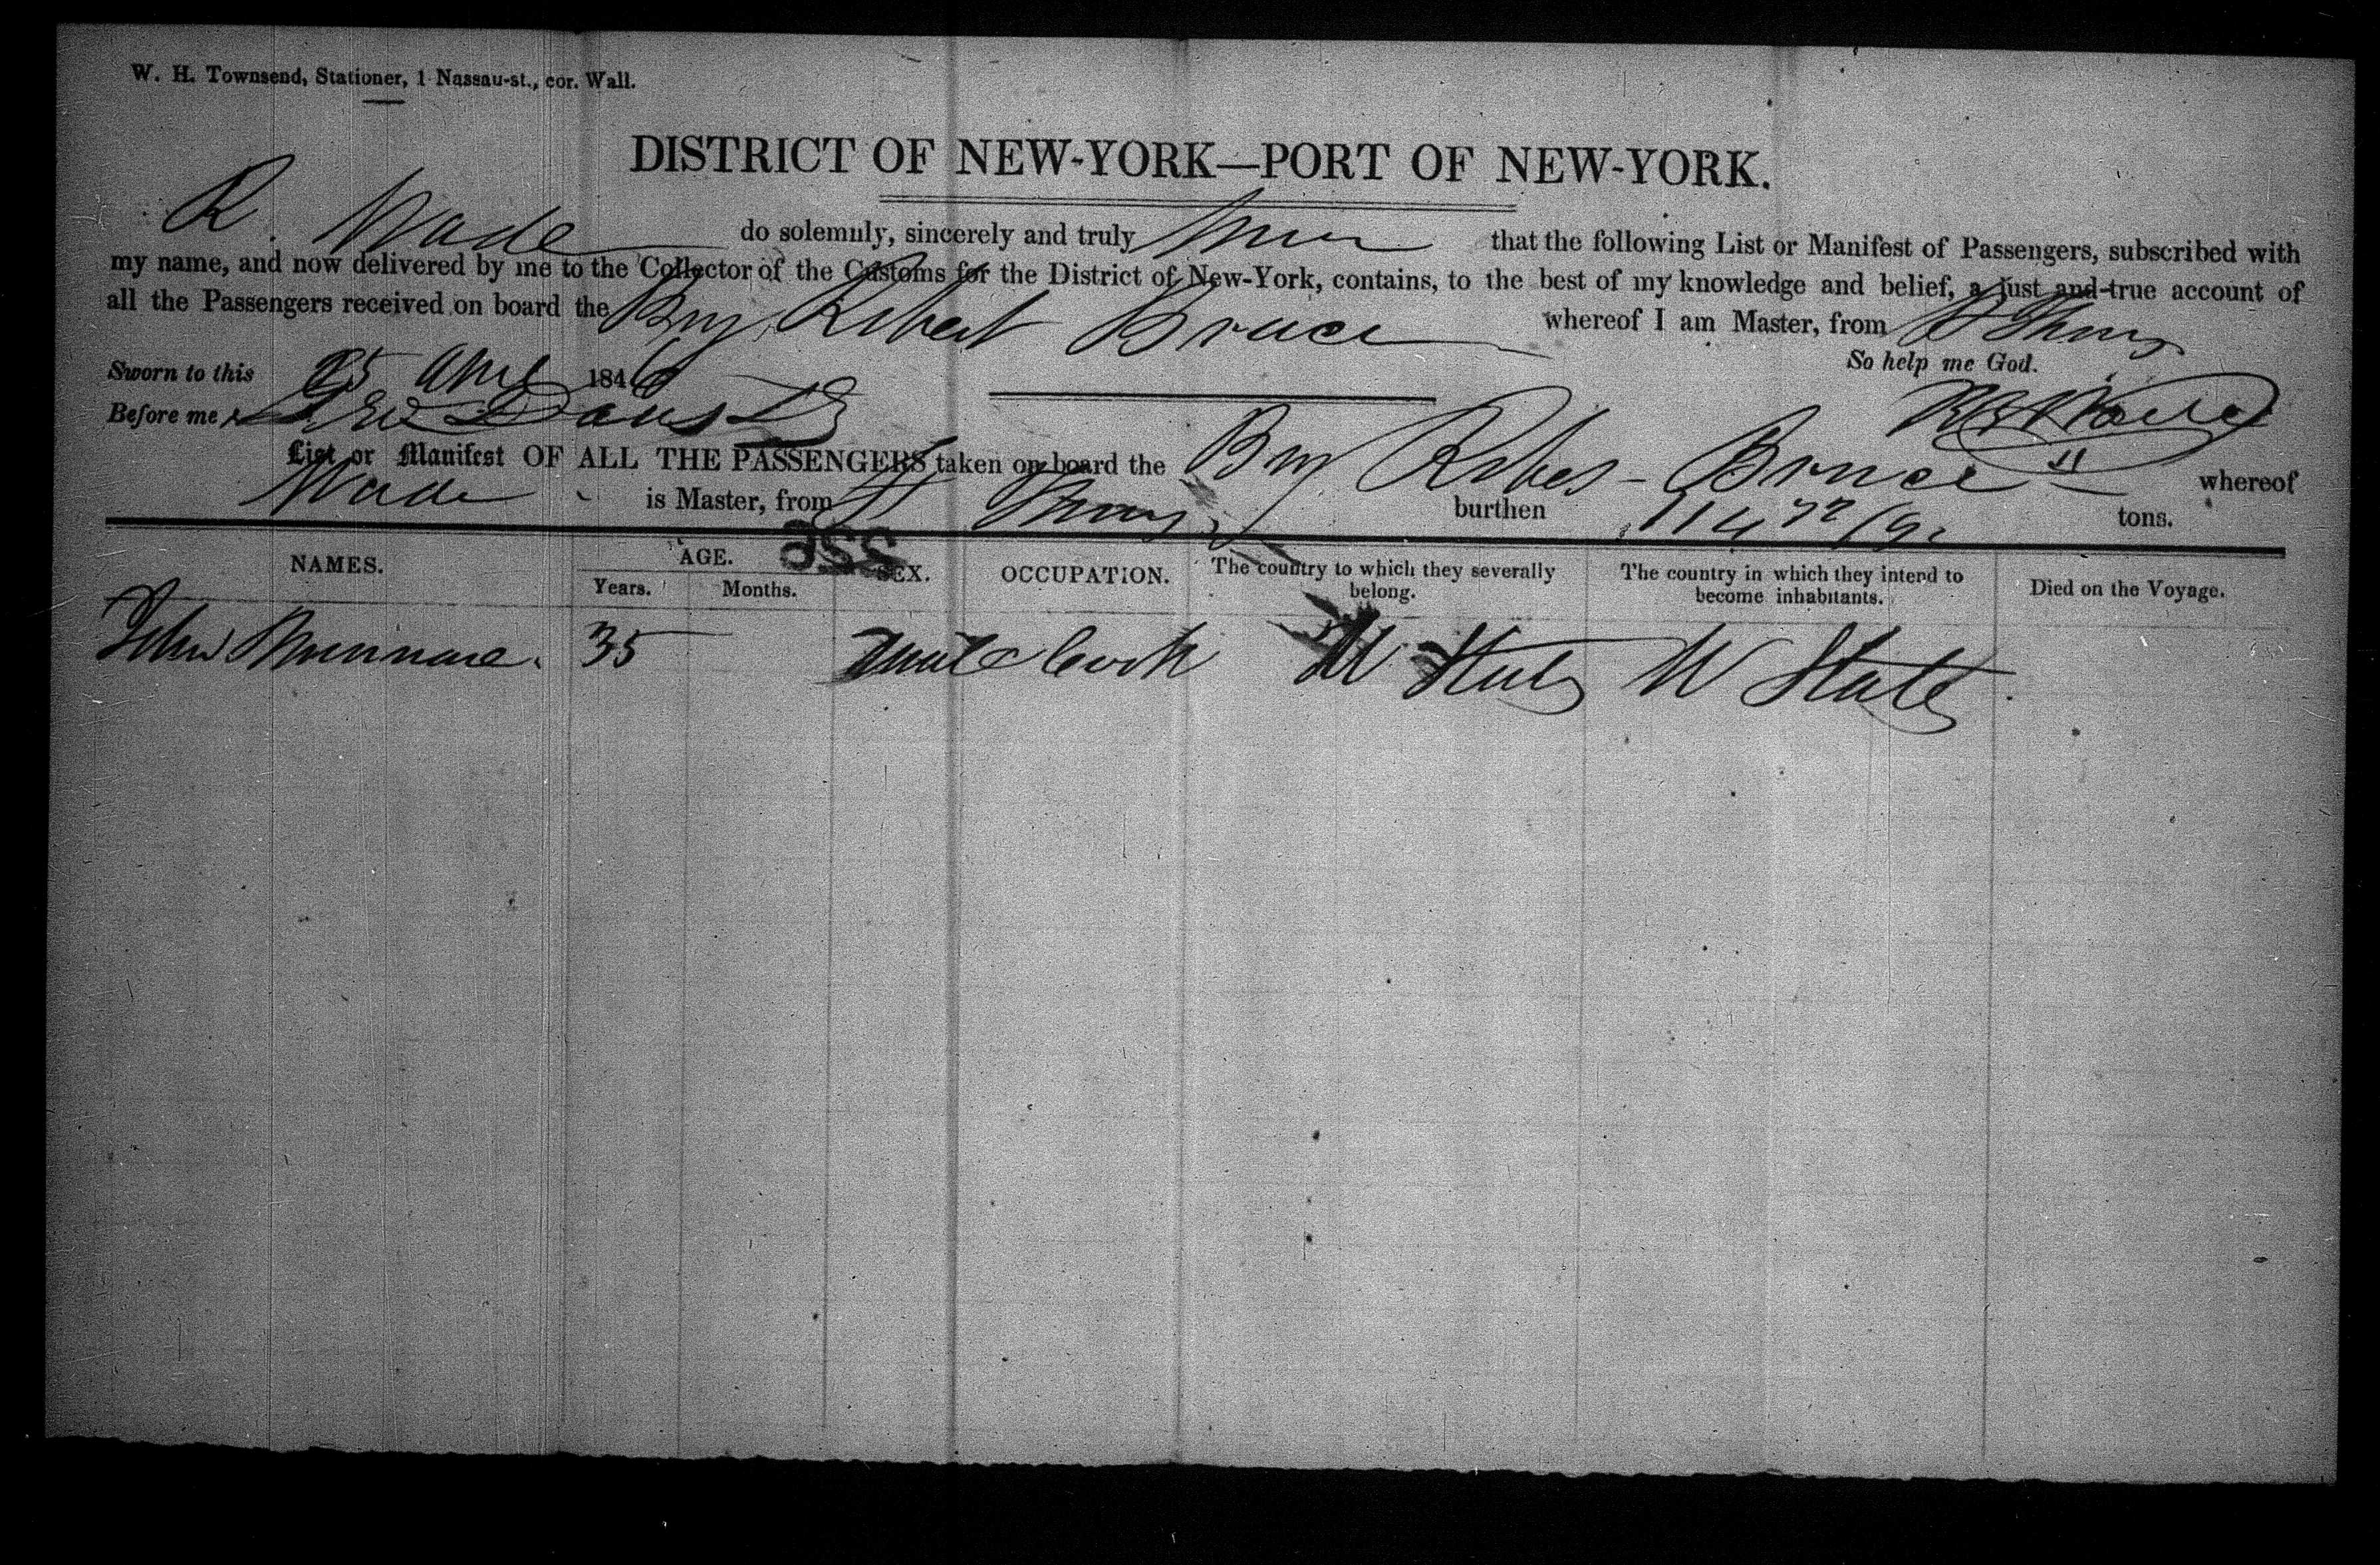 W. H. Townsend, Stationer, 1 Nassau-st., cor. Wall.
DISTRICT OF NEW-YORK—PORT OF NEW-YORK.
R. Wade do solemnly, sincerely and truly that the following List or Manifest of Passengers, subscribed with
my name, and now delivered by me to the Collector of the Customs for the District of New-York, contains, to the best of my knowledge and belief, a just and true account of
all the Passengers received on board the Brig Robert Bruce whereof I am Master, from St Thomas
So help me God.
Sworn to this 25 April 1846
Before me
List or Manifest OF ALL THE PASSENGERS taken on board the Brig Robert Bruce whereof
Wade is Master, from St Thomas burthen tons.
NAMES. AGE. SEX. OCCUPATION. The country to which they severally belong. The country in which they intend to become inhabitants. Died on the Voyage.
Years. Months.
John 35 Male Cook U States U States
355